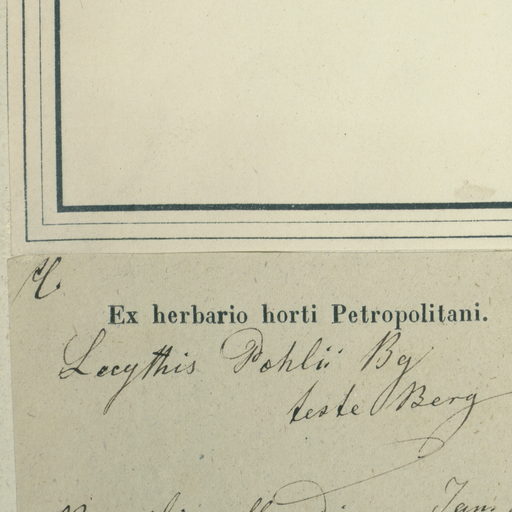 Ex herbario horti Petropolitani.
Lecythis Pohlii Bg
teste Berg
Jan.